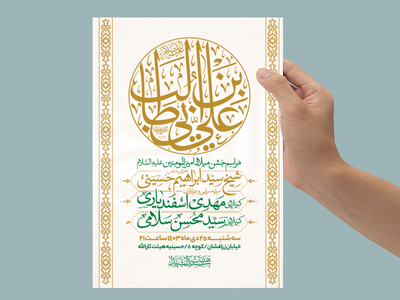 علی بن ابی طالب
مراسم جشن میلاد امیرالمومنین علیه السلام
شیخ سید ابراهیم حسینی
کربلایی مهدی اسفندیاری
کربلایی سید محسن سلامی
سه شنبه ۲۵ دی ماه ۱۴۰۳ ساعت ۲۱
خیابان زرافشان/کوچه ۸/حسینیه هیئت ثارالله